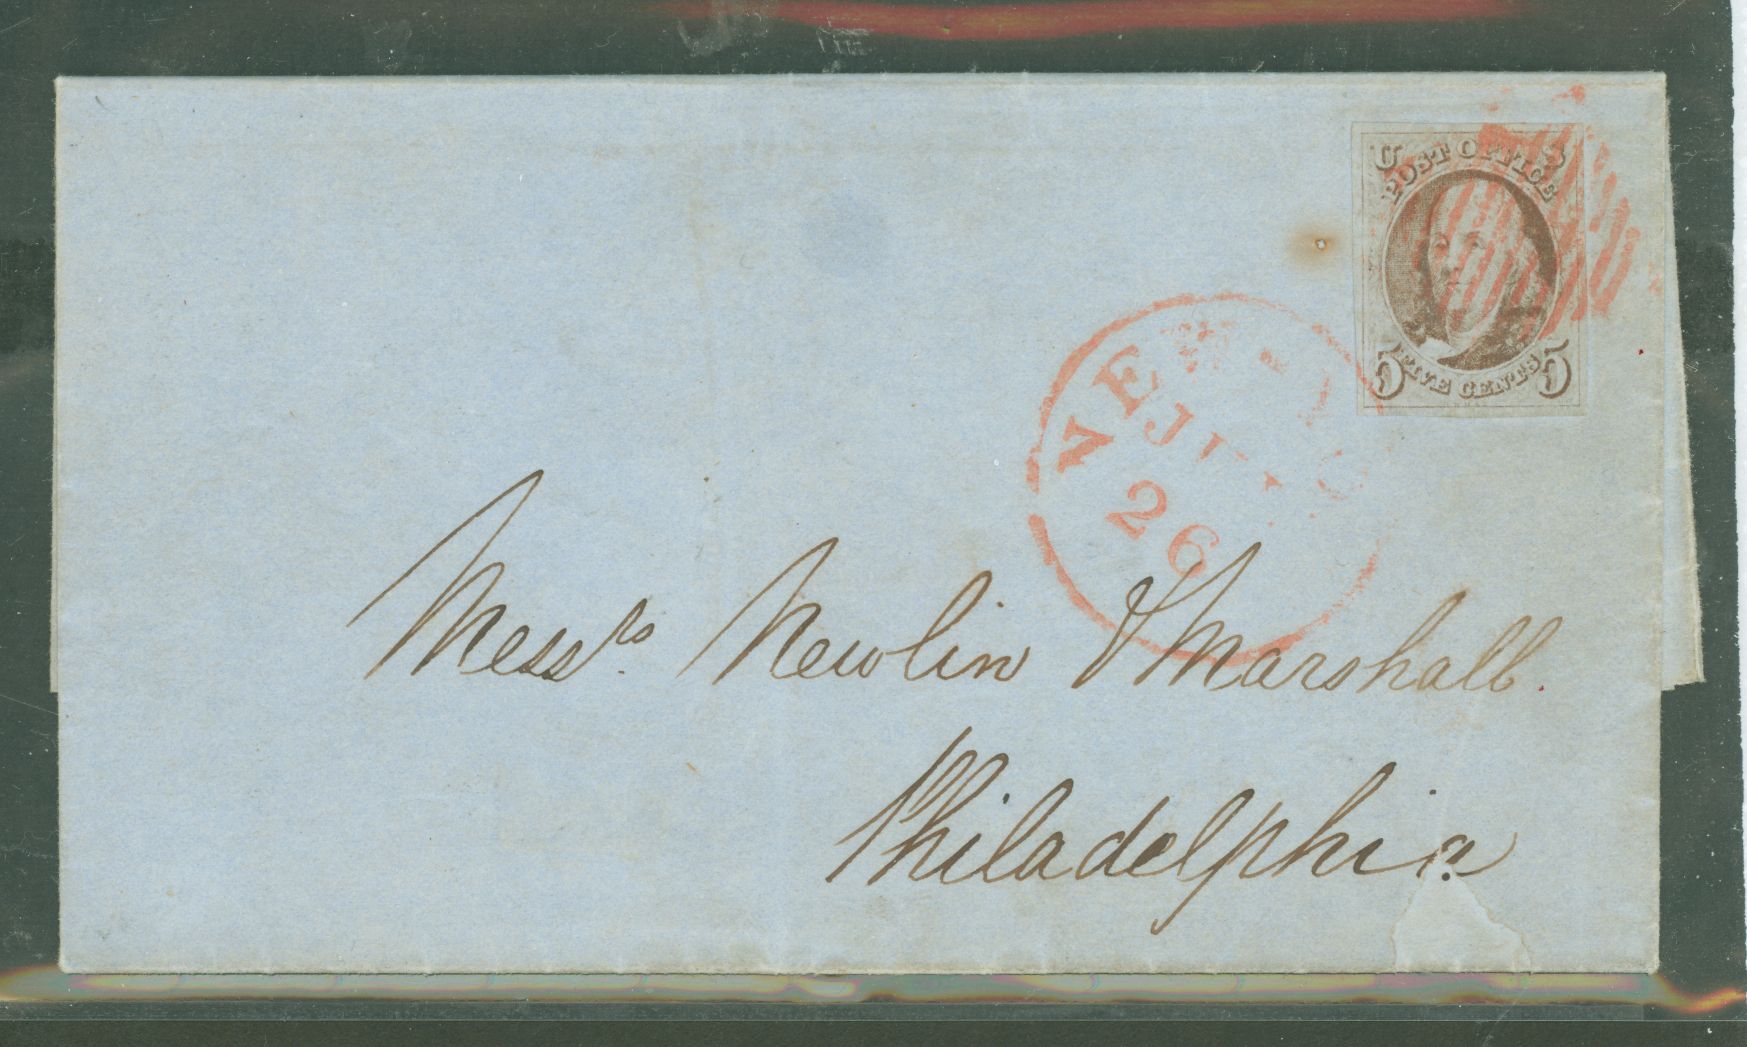 U S
POST OFFICE
5 FIVE CENTS 5
26
Messrs. Newlin & Marshall.
Philadelphia